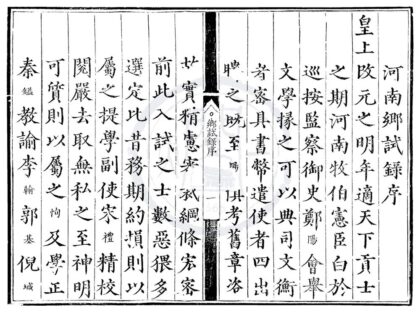 河南鄉試錄序
皇上改元之明年適天下貢士
之期河南牧伯憲臣白於
巡按監察御史鄭陽會舉
文學掾之可以典司文衡
者審具書幣遣使者四出
聘之既至具考舊章洛
鄉試錄序 一
實精慮綱條宏密
前此入試之士數惡猥多
選定比昔務期約損則以
屬之提學副使宋禮精校
閱嚴去取無私之至神明
可質則以屬之恂及學正
秦鎰教諭李翰郭基倪城